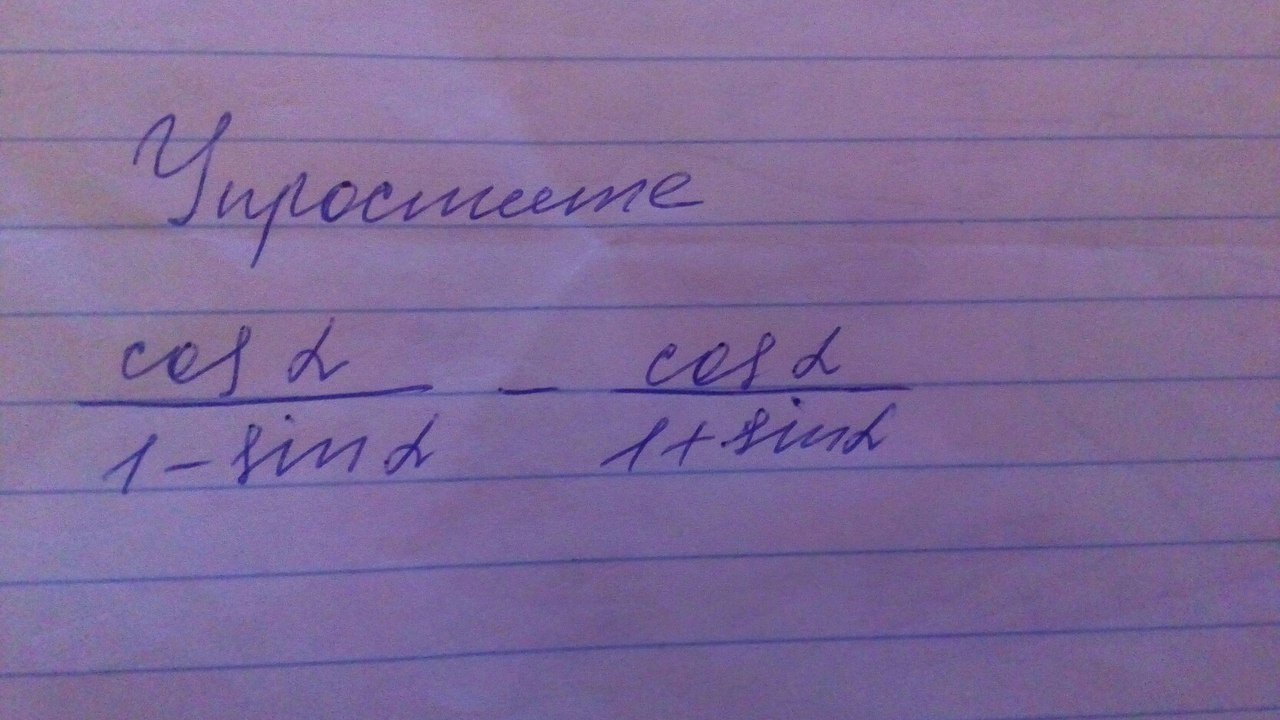 Упростите
cos α / 1 - sin α - cos α / 1 + sin α